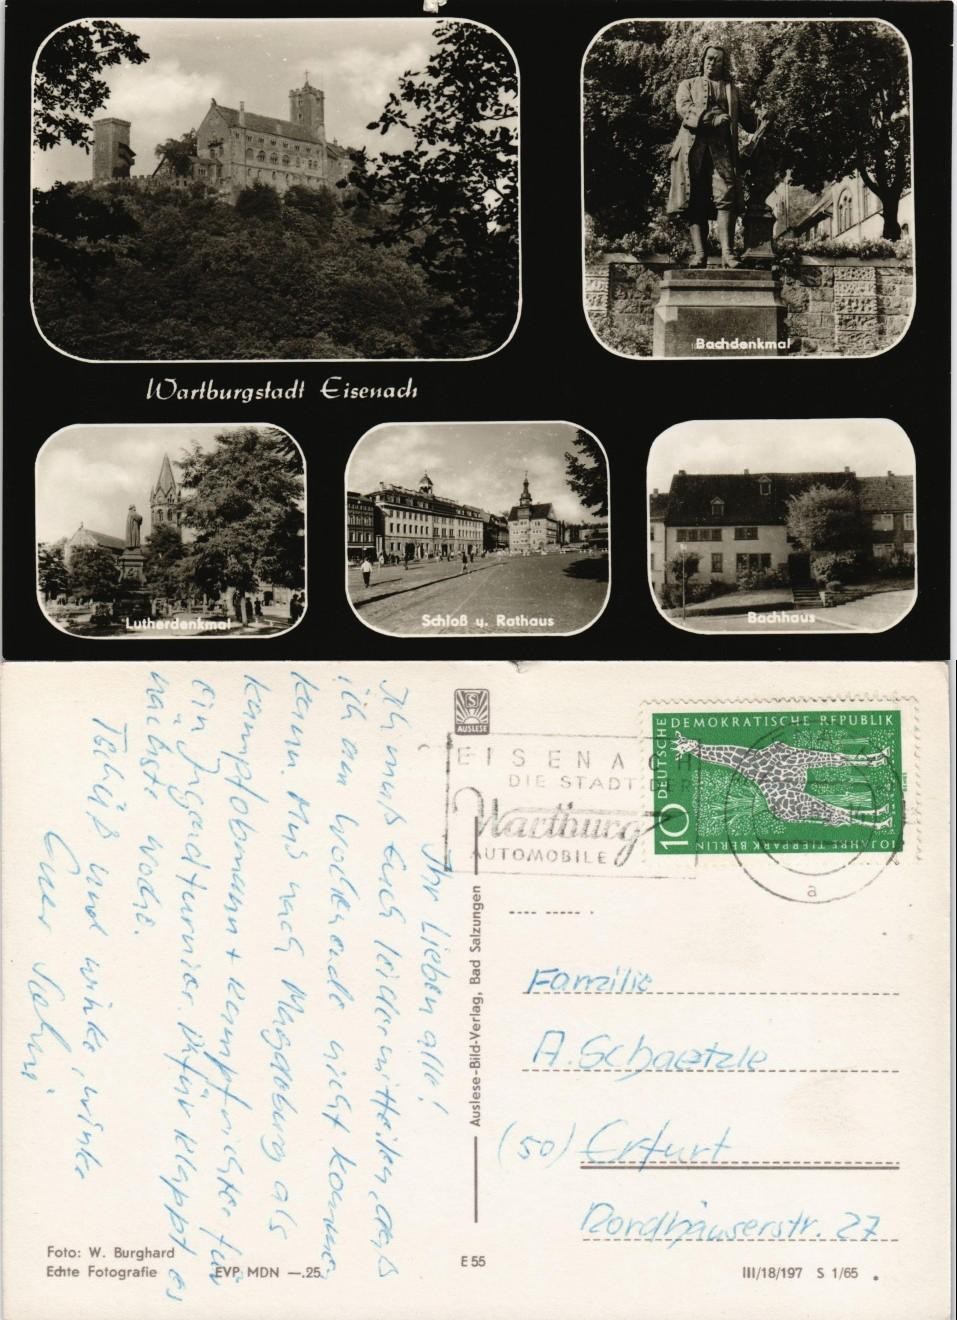 Bachdenkmal
Wartburgstadt Eisenach
Lutherdenkmal
Schloß u. Rathaus
Bachhaus
S
AUSLESE
EISENACH
DIE STADT DER
Wartburg
AUTOMOBILE
DEUTSCHE DEMOKRATISCHE REPUBLIK
10
10 JAHRE TIERPARK BERLIN
a
Ihr Lieben alle!
Ich muß Euch leider mitteilen, daß
ich am Wochenende nicht kommen
kann. Muß nach Magdeburg als
Kampfobmann + Kampfrichter für
ein Jugendturnier. Dafür klappt es
nächste Woche.
Tschüß und winke, winke
Euer
Auslese-Bild-Verlag, Bad Salzungen
Familie
A. Schaetzle
(50) Erfurt
Nordhäuserstr. 27
Foto: W. Burghard
Echte Fotografie
EVP MDN —.25
E 55
III/18/197 S 1/65